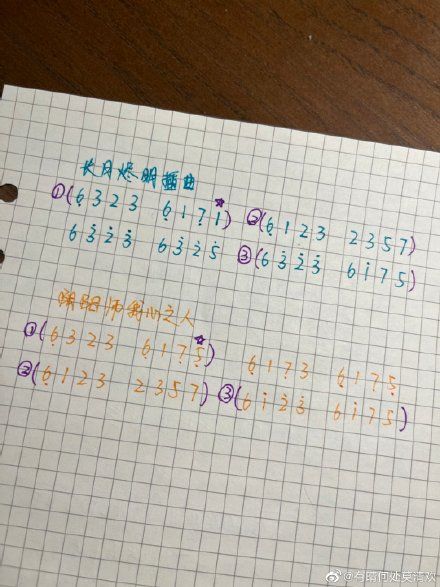 长月烬明插曲
①(6̣ 3 2 3 6̣ 1 7̣ 1☆) ②(6̣ 1 2 3 2 3 5 7)
6 3̇ 2̇ 3̇ 6 3̇ 2̇ 5̇ ③(6 3̇ 2̇ 3̇ 6 i 7 5)
阴阳师 之人
①(6̣ 3 2 3 6̣ 1 7̣ 5̣☆) 6̣ 1 7̣ 3 6̣ 1 7̣ 5̣
②(6̣ 1 2 3 2 3 5 7) ③(6 i 2̇ 3̇ 6 i 7 5)
@有晴何处莫清欢